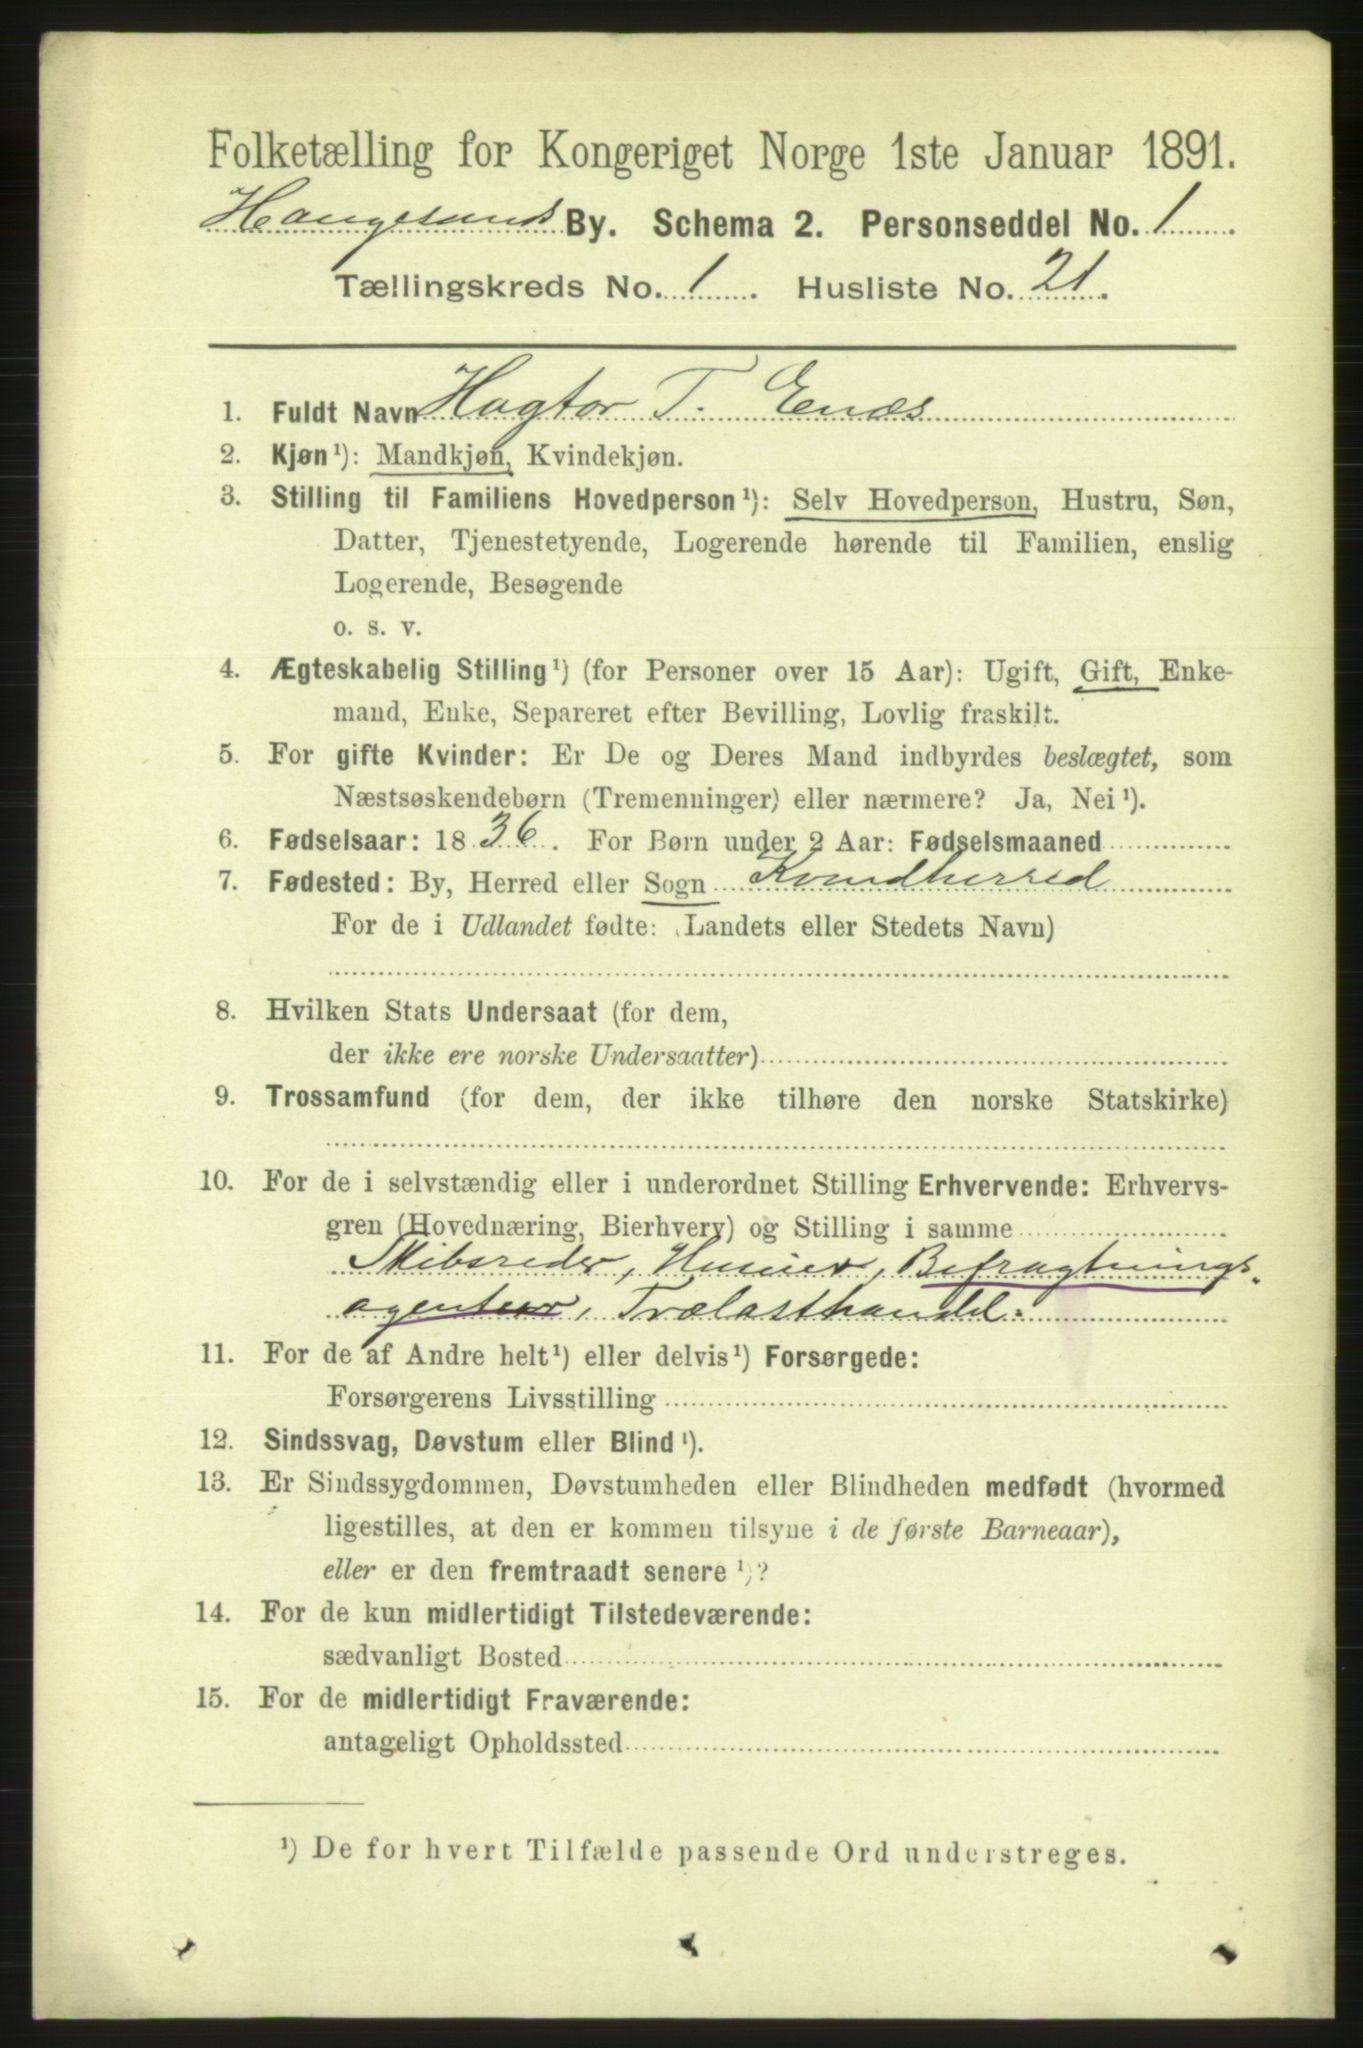 Folketælling for Kongeriget Norge 1ste Januar 1891.
Haugesunds By. Schema 2. Personseddel No. 1
Tællingskreds No. 1. Husliste No. 21.
1. Fuldt Navn Hagtor T. Enæs
2. Kjøn¹): Mandkjøn, Kvindekjøn.
3. Stilling til Familiens Hovedperson¹): Selv Hovedperson, Hustru, Søn,
Datter, Tjenestetyende, Logerende hørende til Familien, enslig
Logerende, Besøgende
o. s. v.
4. Ægteskabelig Stilling¹) (for Personer over 15 Aar): Ugift, Gift, Enke-
mand, Enke, Separeret efter Bevilling, Lovlig fraskilt.
5. For gifte Kvinder: Er De og Deres Mand indbyrdes beslægtet, som
Næstsøskendebørn (Tremenninger) eller nærmere? Ja, Nei¹).
6. Fødselsaar: 1836. For Børn under 2 Aar: Fødselsmaaned
7. Fødested: By, Herred eller Sogn Kvindherred
For de i Udlandet fødte: (Landets eller Stedets Navn)
8. Hvilken Stats Undersaat (for dem,
der ikke ere norske Undersaatter)
9. Trossamfund (for dem, der ikke tilhøre den norske Statskirke)
10. For de i selvstændig eller i underordnet Stilling Erhvervende: Erhvervs-
gren (Hovednæring, Bierhverv) og Stilling i samme
Skibsreder, Huseier, Befragtnings-
agentur, Trælasthandel.
11. For de af Andre helt¹) eller delvis¹) Forsørgede:
Forsørgerens Livsstilling
12. Sindssvag, Døvstum eller Blind¹).
13. Er Sindssygdommen, Døvstumheden eller Blindheden medfødt (hvormed
ligestilles, at den er kommen tilsyne i de første Barneaar),
eller er den fremtraadt senere¹)?
14. For de kun midlertidigt Tilstedeværende:
sædvanligt Bosted
15. For de midlertidigt Fraværende:
antageligt Opholdssted
¹) De for hvert Tilfælde passende Ord understreges.